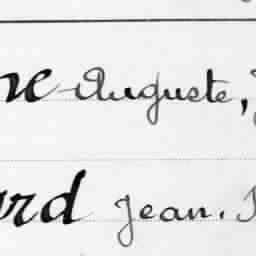 ne Auguste,
rd Jean.